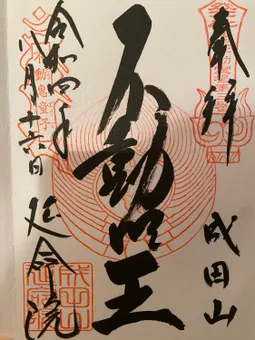 奉拝
成田山
不動明王
令和四年
八月十六日
延命院